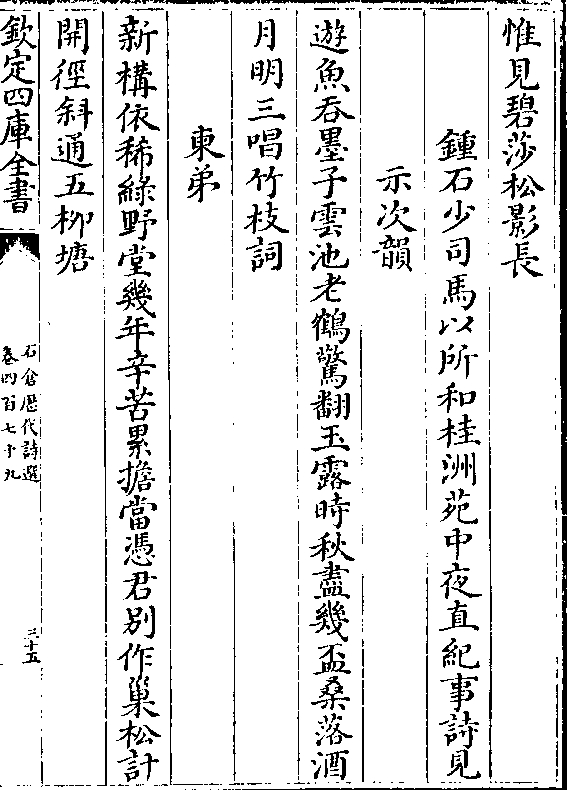 惟見碧莎松影長
鍾石少司馬以所和桂洲苑中夜直紀事詩見
示次韻
遊魚吞墨子雲池老鶴驚翻玉露時秋盡幾盃桑落酒
月明三唱竹枝詞
柬弟
新構依稀綠野堂幾年辛苦累擔當憑君別作巢松計
開徑斜通五柳塘
欽定四庫全書
石倉歴代詩選
卷四百七十九
三十五